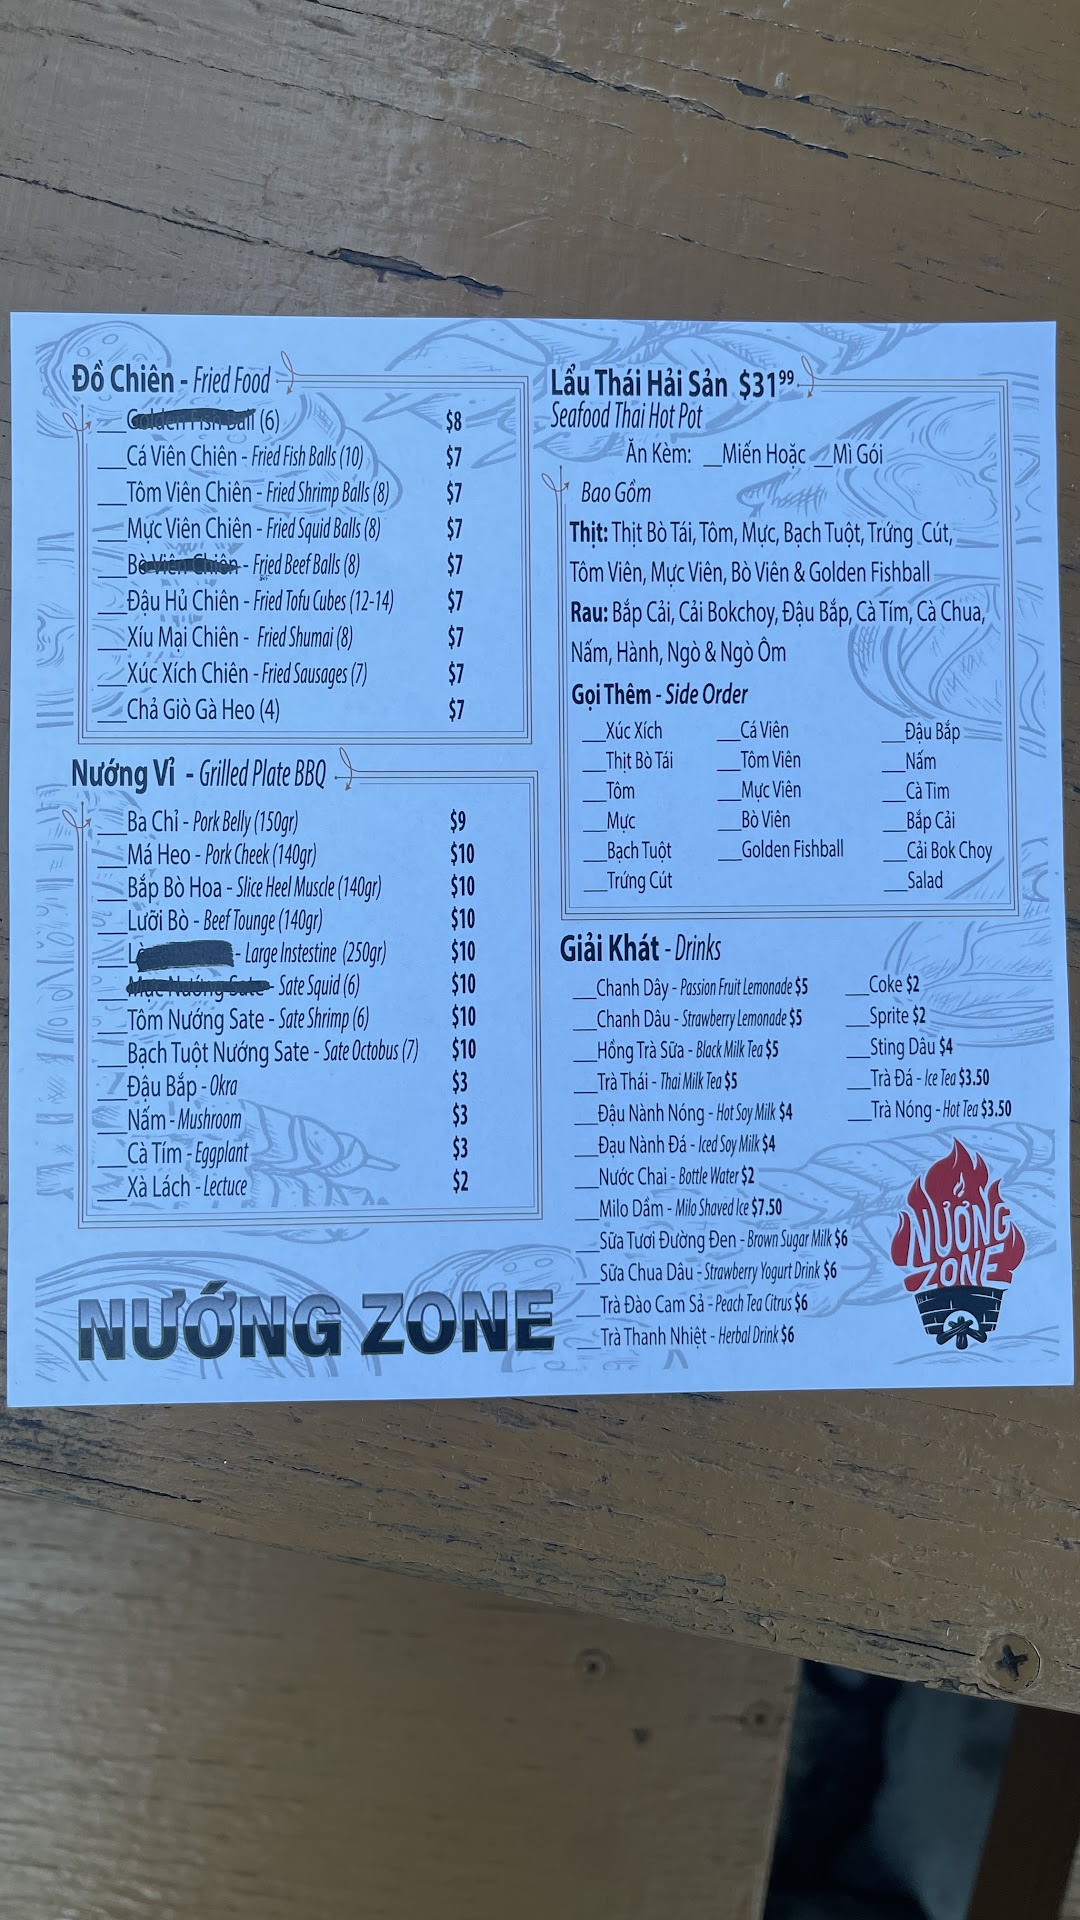 Đồ Chiên - Fried Food
Golden Fish Ball (6) $8
Cá Viên Chiên - Fried Fish Balls (10) $7
Tôm Viên Chiên - Fried Shrimp Balls (8) $7
Mực Viên Chiên - Fried Squid Balls (8) $7
Bò Viên Chiên - Fried Beef Balls (8) $7
Đậu Hủ Chiên - Fried Tofu Cubes (12-14) $7
Xíu Mại Chiên - Fried Shumai (8) $7
Xúc Xích Chiên - Fried Sausages (7) $7
Chả Giò Gà Heo (4) $7
Nướng Vỉ - Grilled Plate BBQ
Ba Chỉ - Pork Belly (150gr) $9
Má Heo - Pork Cheek (140gr) $10
Bắp Bò Hoa - Slice Heel Muscle (140gr) $10
Lưỡi Bò - Beef Tounge (140gr) $10
- Large Instestine (250gr) $10
Mực Nướng Sate - Sate Squid (6) $10
Tôm Nướng Sate - Sate Shrimp (6) $10
Bạch Tuột Nướng Sate - Sate Octobus (7) $10
Đậu Bắp - Okra $3
Nấm - Mushroom $3
Cà Tím - Eggplant $3
Xà Lách - Lectuce $2
NƯỚNG ZONE
Lẩu Thái Hải Sản $31.99
Seafood Thai Hot Pot
Ăn Kèm: __Miến Hoặc __Mì Gói
Bao Gồm
Thịt: Thịt Bò Tái, Tôm, Mực, Bạch Tuột, Trứng Cút,
Tôm Viên, Mực Viên, Bò Viên & Golden Fishball
Rau: Bắp Cải, Cải Bokchoy, Đậu Bắp, Cà Tím, Cà Chua,
Nấm, Hành, Ngò & Ngò Ôm
Gọi Thêm - Side Order
__Xúc Xích __Cá Viên __Đậu Bắp
__Thịt Bò Tái __Tôm Viên __Nấm
__Tôm __Mực Viên __Cà Tim
__Mực __Bò Viên __Bắp Cải
__Bạch Tuột __Golden Fishball __Cải Bok Choy
__Trứng Cút __Salad
Giải Khát - Drinks
__Chanh Dây - Passion Fruit Lemonade $5 __Coke $2
__Chanh Dâu - Strawberry Lemonade $5 __Sprite $2
__Hồng Trà Sữa - Black Milk Tea $5 __Sting Dâu $4
__Trà Thái - Thai Milk Tea $5 __Trà Đá - Ice Tea $3.50
__Đậu Nành Nóng - Hot Soy Milk $4 __Trà Nóng - Hot Tea $3.50
__Đạu Nành Đá - Iced Soy Milk $4
__Nước Chai - Bottle Water $2
__Milo Dầm - Milo Shaved Ice $7.50
__Sữa Tươi Đường Đen - Brown Sugar Milk $6
__Sữa Chua Dâu - Strawberry Yogurt Drink $6
__Trà Đào Cam Sả - Peach Tea Citrus $6
__Trà Thanh Nhiệt - Herbal Drink $6
NƯỚNG
ZONE